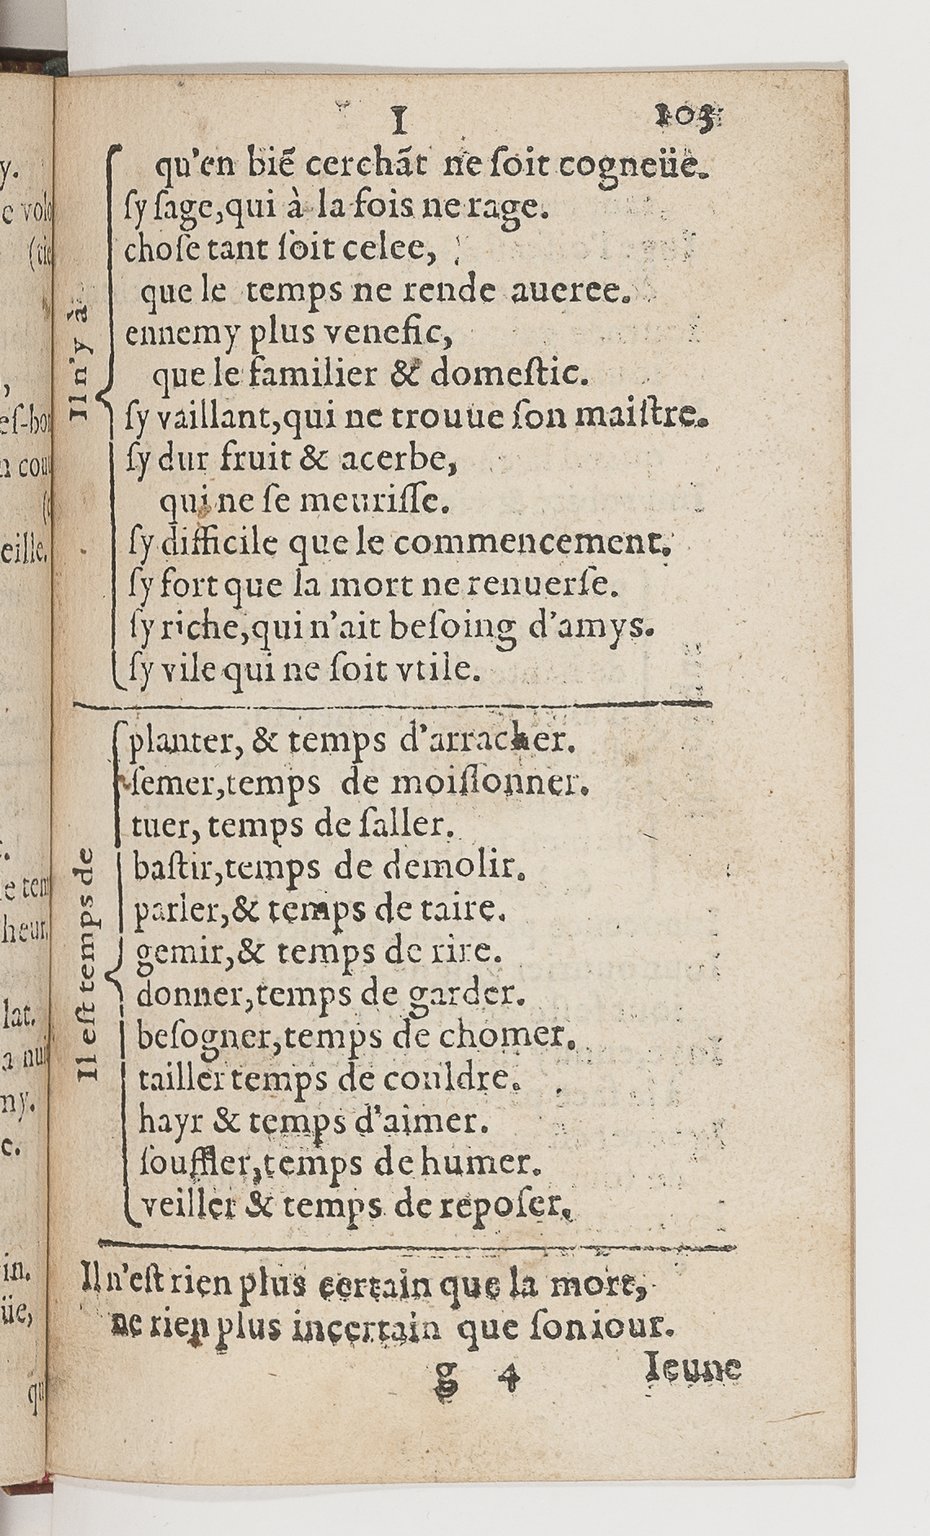 I 103
Il n'y à
qu'en biẽ cerchãt ne ſoit cogneüe.
ſy ſage,qui à la fois ne rage.
choſe tant ſoit celee,
que le temps ne rende aueree.
ennemy plus venefic,
que le familier & domeſtic.
ſy vaillant,qui ne trouue ſon maiſtre.
ſy dur fruit & acerbe,
qui ne ſe meuriſſe.
ſy difficile que le commencement.
ſy fort que la mort ne renuerſe.
ſy riche,qui n'ait beſoing d'amys.
ſy vile qui ne ſoit vtile.
Il eſt temps de
planter, & temps d'arracher.
ſemer,temps de moiſſonner.
tuer, temps de ſaller.
baſtir,temps de demolir.
parler,& temps de taire.
gemir,& temps de rire.
donner,temps de garder.
beſogner,temps de chomer.
tailler temps de couldre.
hayr & temps d'aimer.
ſouffler,temps de humer.
veiller & temps de repoſer.
Il n'eſt rien plus certain que la mort,
ne rien plus incertain que ſon iour.
g 4 Ieune